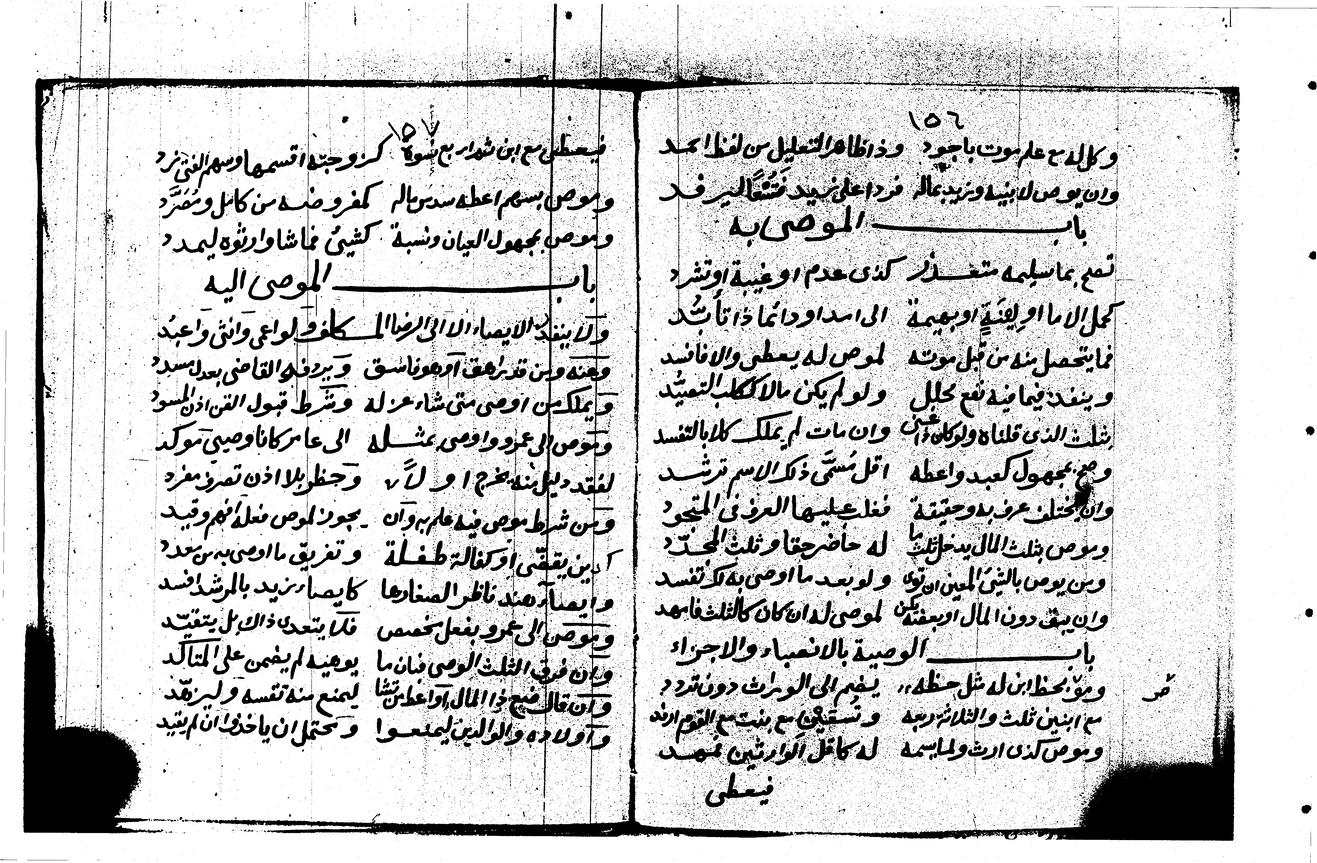 ١٥٦
وكل له مع علم موت باجود وذا ظاهر التعليل من لفظ احمد
وان يوص لابنيه وزيد بماله فردا على زيد فتسعا ليرفد
باب الموصى به
تصح بما تسليمه متعذر كذى عدم او غيبة او تشرد
كحمل الاما او لقنة او بهيمة الى امد او دائما ذا تأبد
فما يتحصل منه من قبل موته لموص له يعطى والا فافسد
وينفذ فيما فيه نفع محلل ولو لم يكن مالا ككلب التصيد
بثلث الذى قلناه ولو كان ذا غنى وان مات لم يملك كلابا لتفسد
وصح بمجهول كعبد واعطه اقل مسمى ذلك الاسم ترشد
وان يختلف عرف به وحقيقة فغلب عليها العرف في المتجود
وموص بثلث المال يدخل ثلث ما له حاضر حقا وثلث المجدد
ومن يوص بالشئ المعين ان توى ولو بعد ما اوصى به لك تفسد
وان يبق دون المال او بعضه يكن لموصى له ان كان كالثلث فامهد
باب الوصية بالانصباء والاجزاء
وموص بحظ ابن له مثل حظه يضم الى الوراث دون تردد
مع ابنين ثلث والثلاثة ربعه وتسعين مع بنت مع القوم ارفد
وموص كذى ارث ولما يسمه له كاقل الوارثين فمهد
فيعطى
١٥٧
فيعطى مع ابن ثم اربع نسوة كزوجته اقسمها وسهم الفتى زد
وموص بسهم اعطه سدس ماله كمفروضه من كامل ومصرد
وموص بمجهول العيان ونسبة كشئ فما شا وارثوه ليمدد
باب الموصى اليه
ولا ينفذ الايصاء الا الى الرضا المكلف ولو اعمى وانثى واعبد
وعنه ومن قد يراهق او هو فاسق ويردفه القاضى بعدل مسدد
ويملك من اوصى متى شاء عزله وشرط قبول القن اذن المسود
وموص الى عمرو واوصى بمثله الى عامر كانا وصيي موكد
لفقد دليل منه يخرج اولا وحظر بلا اذن تصرف مفرد
ومن شرط موص فيه علم به وان يجوز لموص فعله افهم وقيد
كدين يقضى او كفالة طفلة وتفريق ما اوصى به من معدد
وايصاء هند ناظر الصغارها كايصاء زيد بالمرشد افسد
وموص الى عمرو بفعل مخصص فلا يتعدى ذاك بل يتقيد
وان فرق الثلث الوصى فبان ما يوهيه لم يضمن على المتاكد
وان قال ضع ذا المال او اعط من تشا ليمنع منه نفسه وليزهد
واولاده والوالدين ليمنعوا ويحتمل ان ياخذوا ان لم يقيد